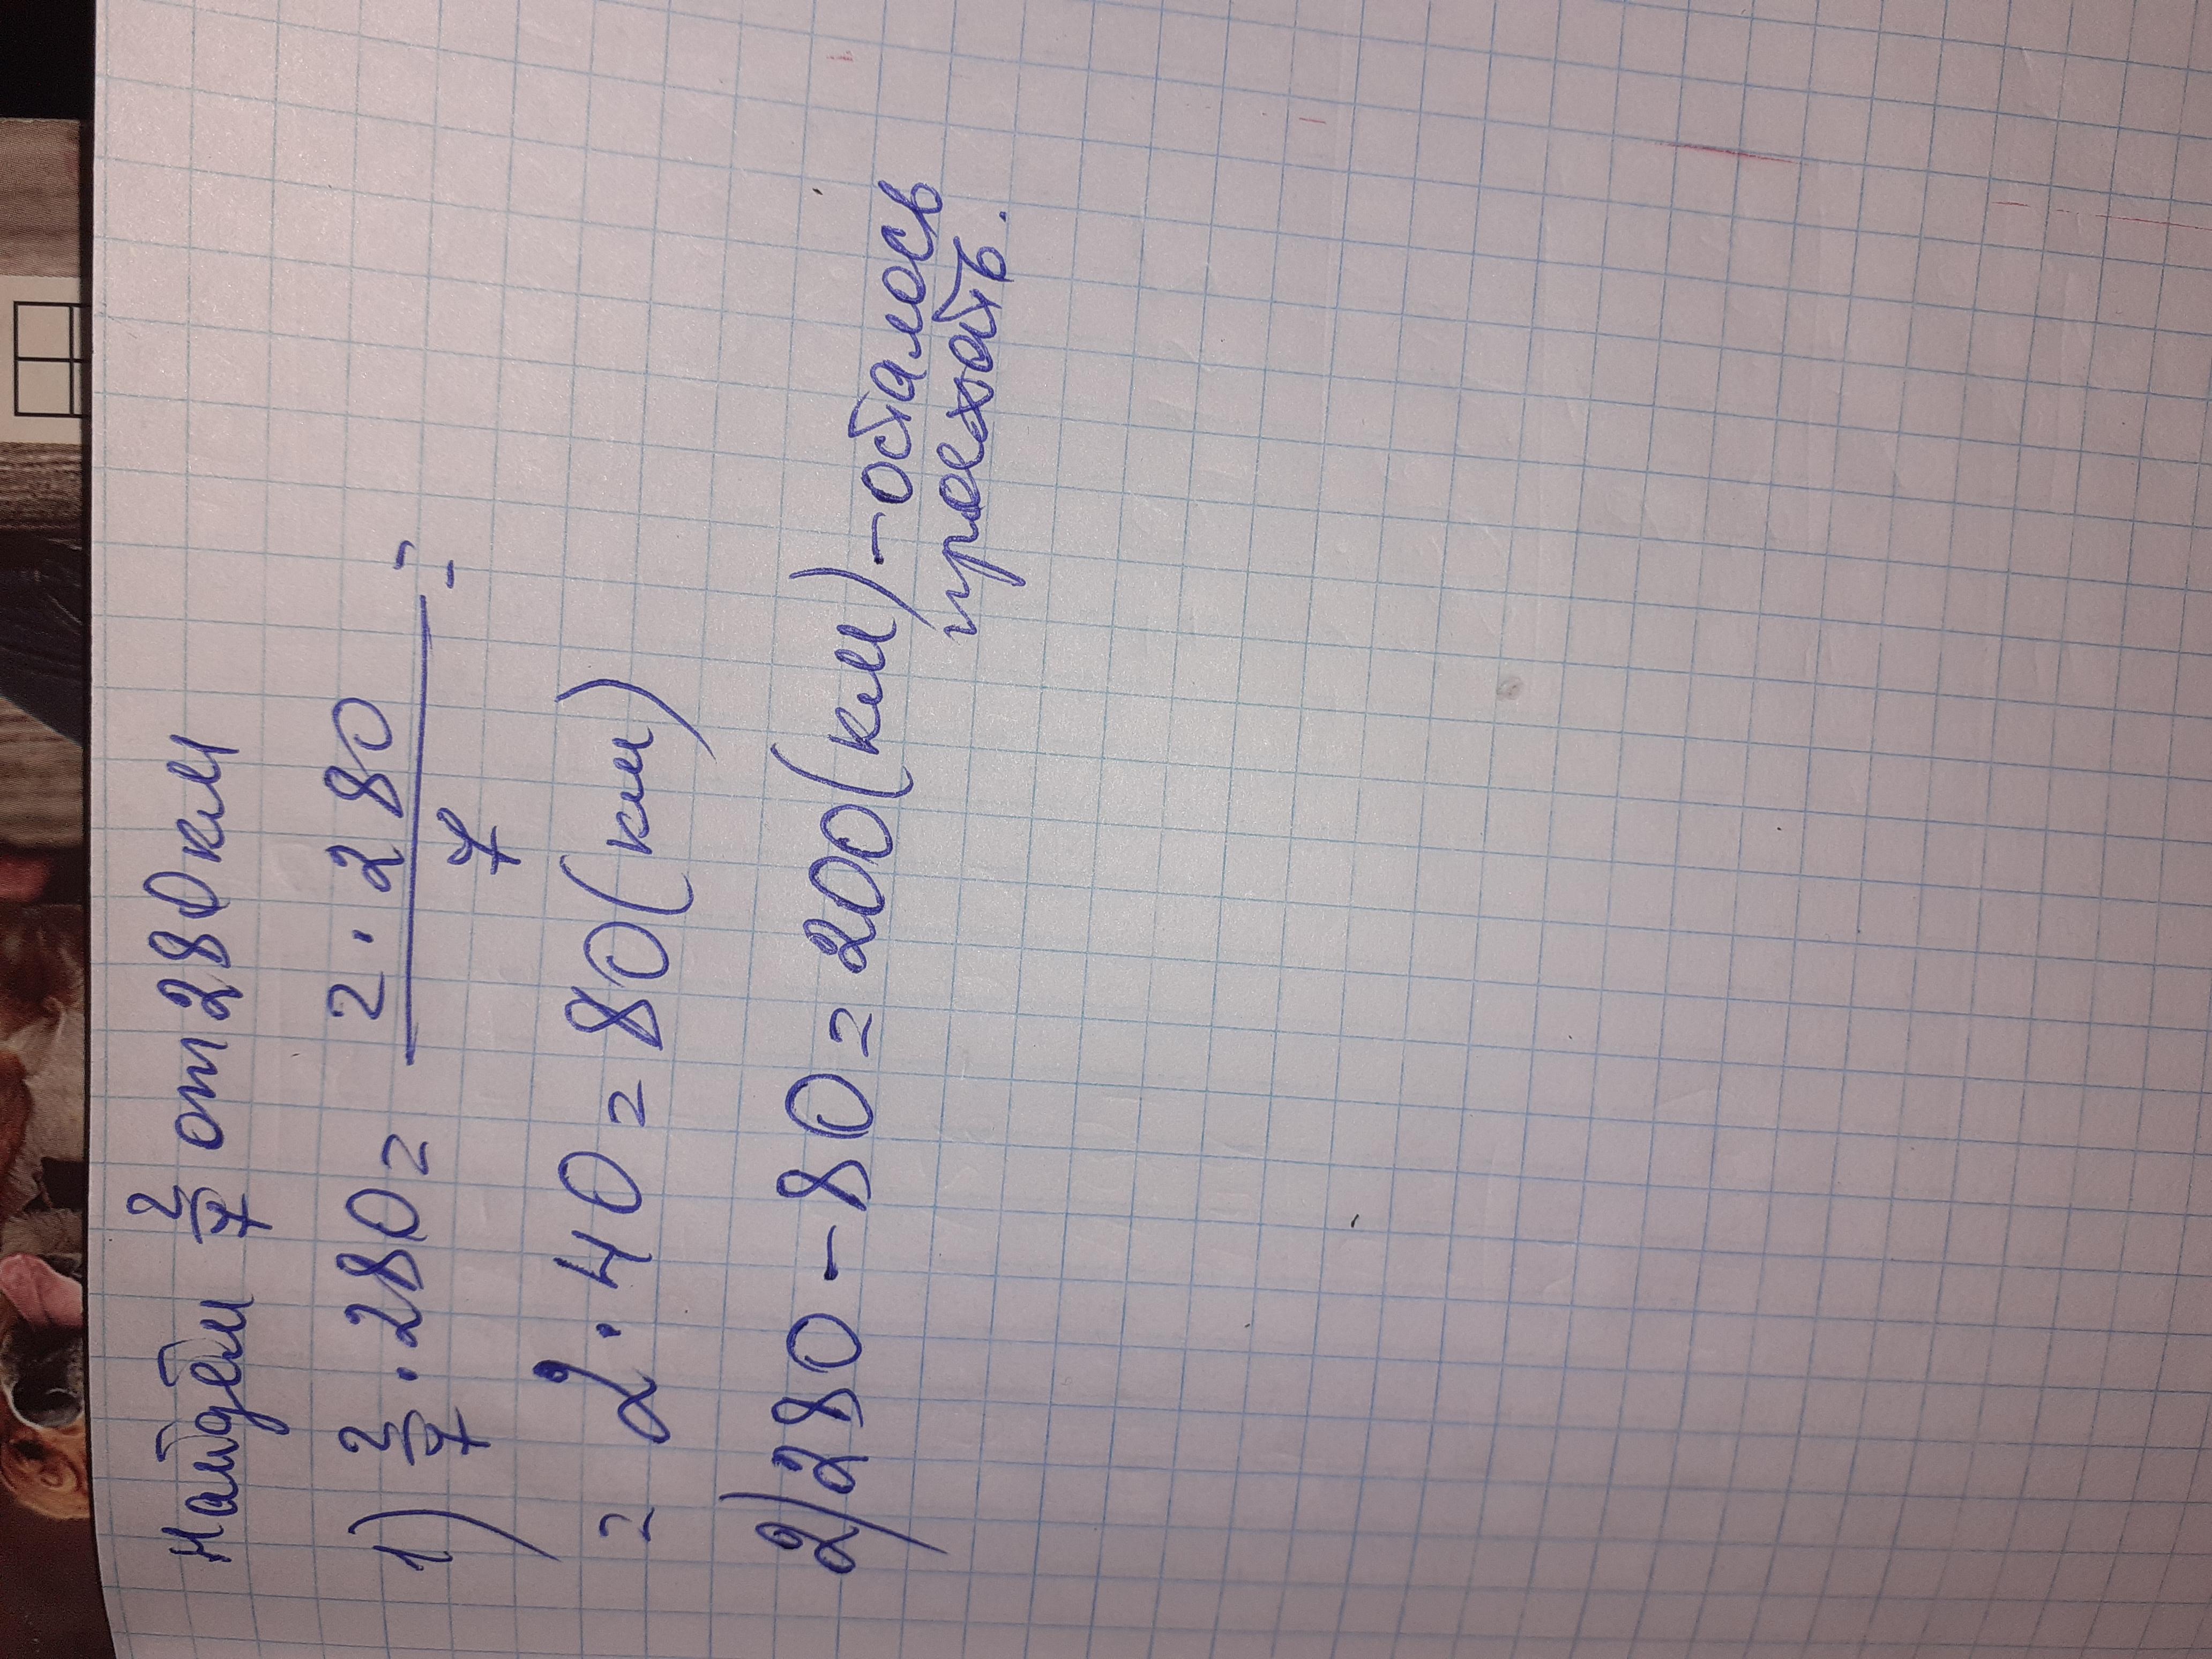 Найдем 2/7 от 280 км
1) 2/7 · 280 = 2 · 280 / 7 =
= 2 · 40 = 80 (км)
2) 280 - 80 = 200 (км) - осталось
проехать.